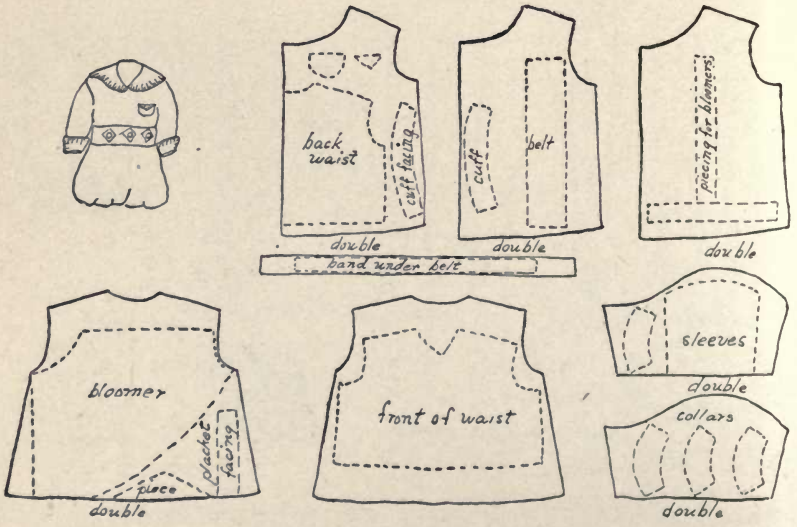 back
waist
cuff facing
double
cuff
belt
double
piecing for bloomers
double
band under belt
bloomer
placket
facing
piece
double
front of waist
sleeves
double
collars
double